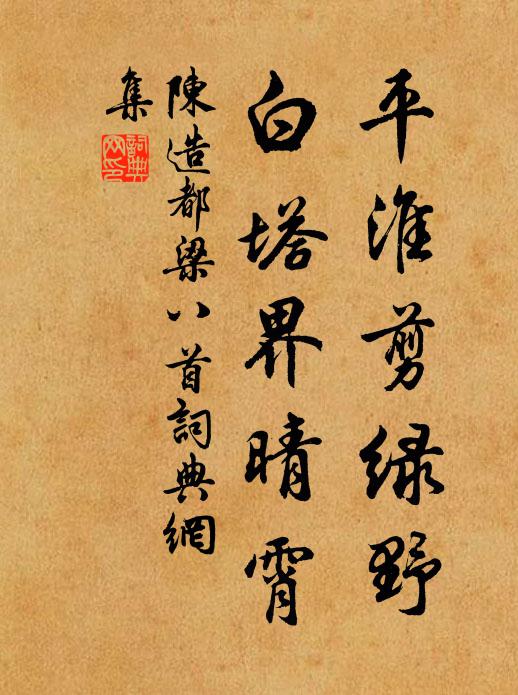 平淮剪绿野
白塔界晴霄
陳造都梁八首詞典網
集
詞典
网印